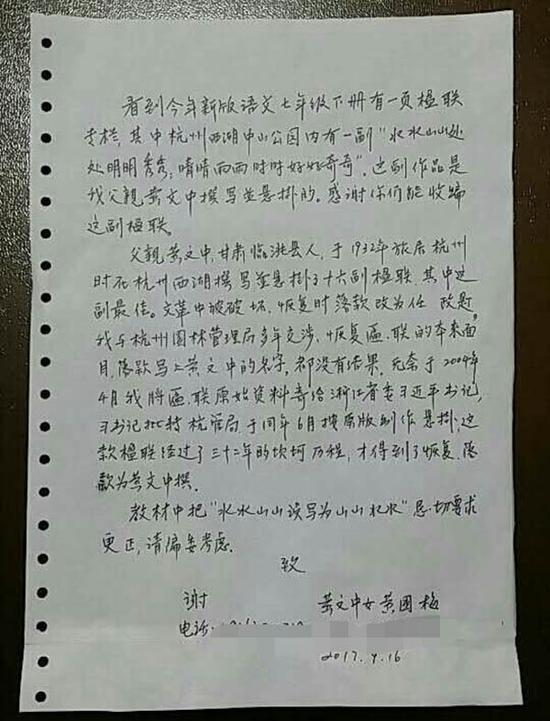 看到今年新版语文七年级下册有一页楹联
专栏,其中杭州西湖中山公园内有一副“水水山山处
处明明秀秀;晴晴雨雨时时好好奇奇”。这副作品是
我父亲黄文中撰写并悬挂的。感谢你们能收编
这副楹联。
父亲黄文中,甘肃临洮县人,于1932年旅居杭州
时在杭州西湖撰写並悬挂了十六副楹联,其中这
副最佳。文革中被破坏,恢复时落款改为任政是,
我与杭州园林管理局多年交涉,恢复匾、联的本来面
目,落款写上黄文中的名字,都没有结果,无奈于2004年
4月我将匾、联原始资料寄给浙江省委习近平书记,
习书记批转杭管局于同年6月按原版制作悬挂,这
款楹联经过了三十二年的坎坷历程,才得到了恢复,落
款为黄文中撰。
教材中把“水水山山误写为山山水水”恳切要求
更正,请编委考虑。
致
谢 黄文中女黄国梅
电话:
2017.4.16